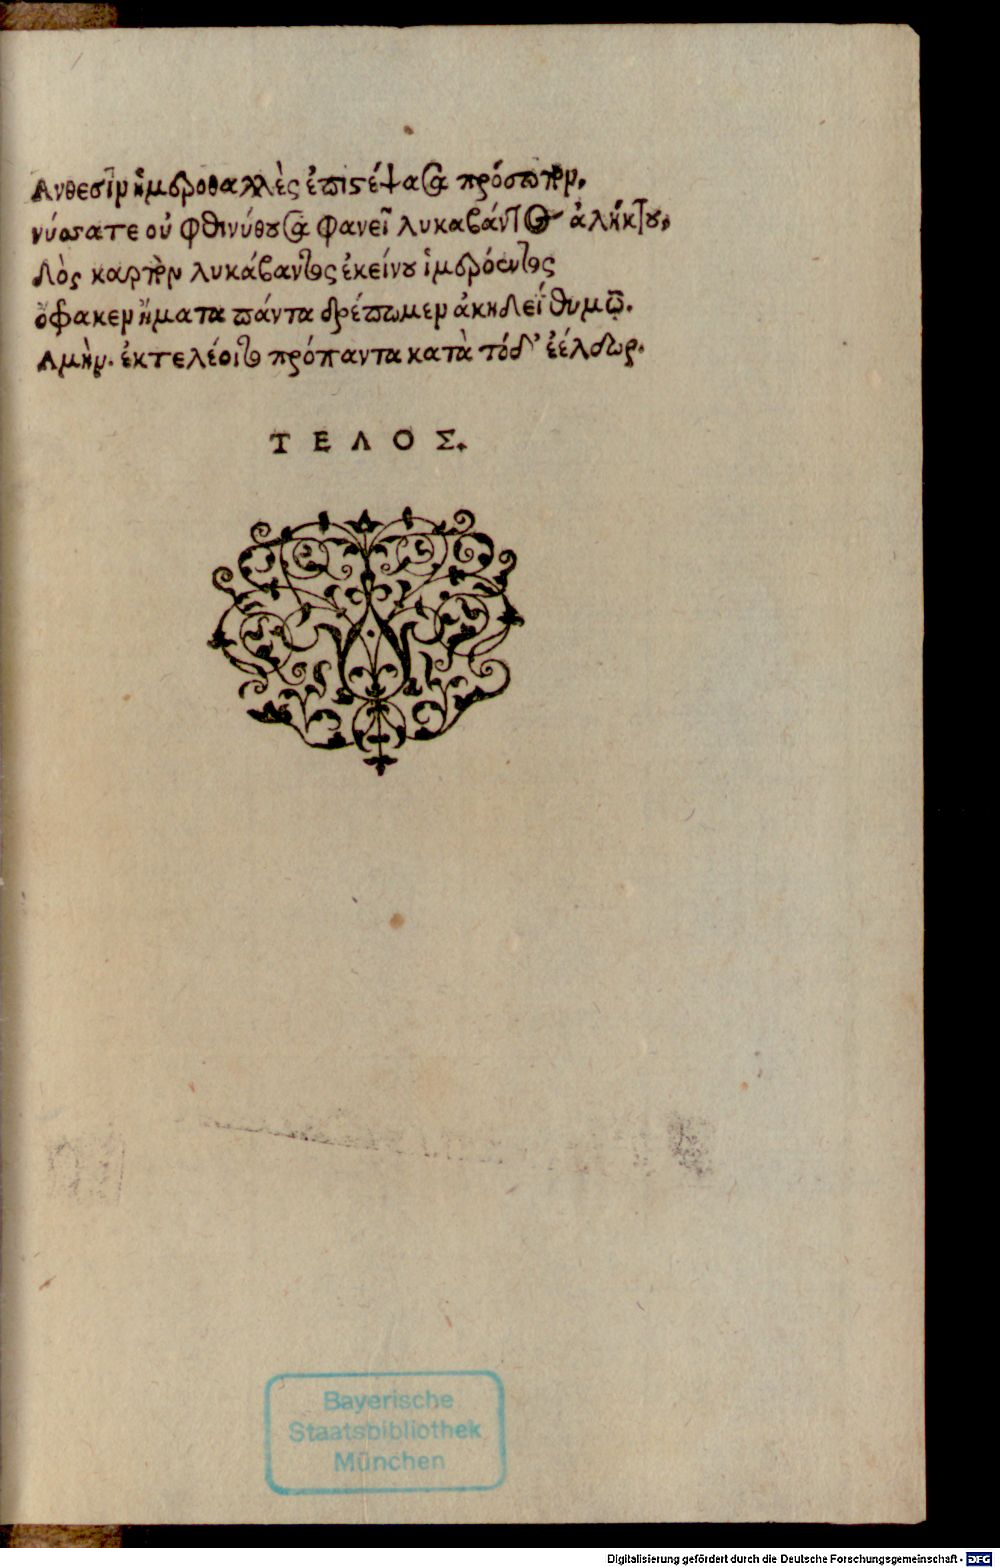 Ανθεσιν ἱμβροθαλλὲς ἐπιστέψασα πρόσωπον,
νύσσατε οὐ φθινύθουσα φανεῖ λυκαβάντος ἀλήκτου,
Δὸς καρπὸν λυκάβαντος ἐκείνου ἱμβρόεντος
ὄφακεν ἤματα πάντα δρέπωμεν ἀκηδέϊ θυμῷ.
Αμὴν. ἐκτελέοιτο πρόπαντα κατὰ τόδ' ἐέλδωρ.
ΤΕΛΟΣ.
Bayerische
Staatsbibliothek
München
Digitalisierung gefördert durch die Deutsche Forschungsgemeinschaft - DFG